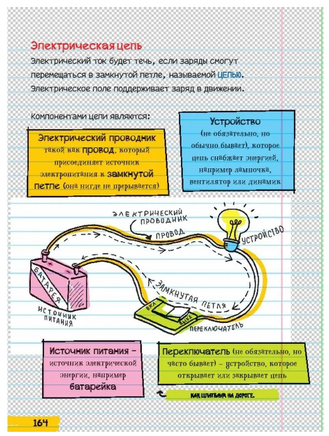 Электрическая цепь
Электрический ток будет течь, если заряды смогут
перемещаться в замкнутой петле, называемой ЦЕПЬЮ.
Электрическое поле поддерживает заряд в движении.
Компонентами цепи являются:
Электрический проводник
такой как провод, который
присоединяет источник
электропитания в замкнутой
петле (она нигде не прерывается)
Устройство
(не обязательно, но
обычно бывает), которое
цепь снабжает энергией,
например лампочка,
вентилятор или динамик
ЭЛЕКТРИЧЕСКИЙ
ПРОВОДНИК
ПРОВОД
УСТРОЙСТВО
БАТАРЕЯ
ИСТОЧНИК
ПИТАНИЯ
ЗАМКНУТАЯ ПЕТЛЯ
ПЕРЕКЛЮЧАТЕЛЬ
Источник питания –
источник электрической
энергии, например
батарейка
Переключатель (не обязательно, но
часто бывает) – устройство, которое
открывает или закрывает цепь
КАК ШЛАГБАУМ НА ДОРОГЕ.
164